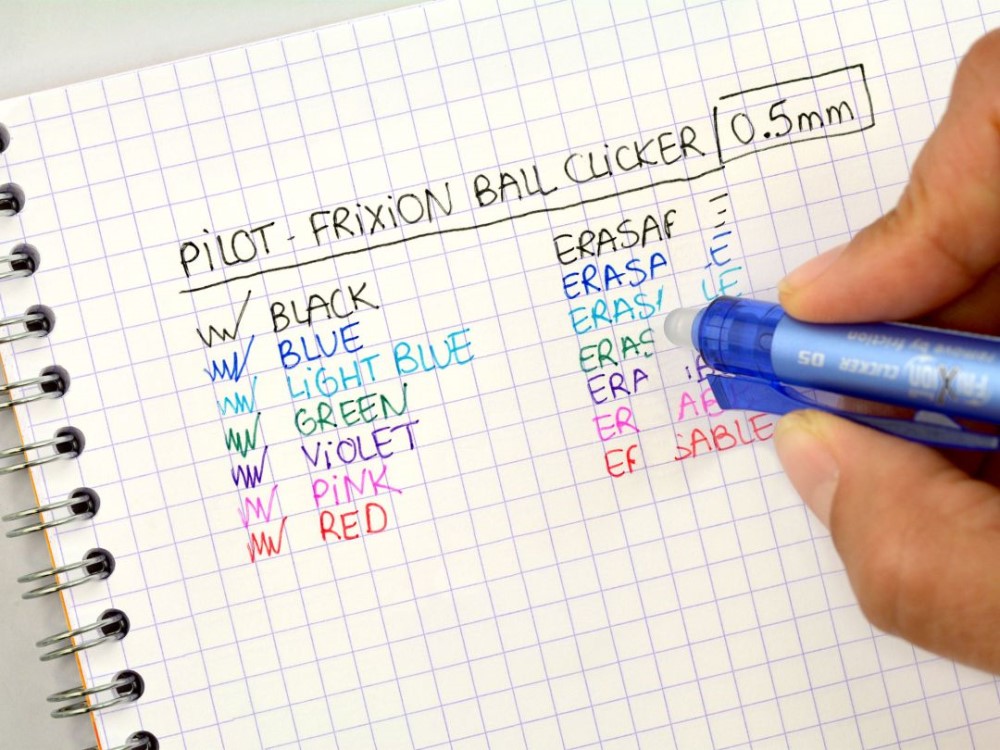 PiLOT - FRiXiON BALL CLiCKER 0.5mm
BLACK
BLUE
LiGHT BLUE
GREEN
ViOLET
PiNK
RED
ERASA
ERASA E
ERAS LE
ERAS
ERA
ER AB
E SABLE
FRIXION CLICKER 05
remove by friction